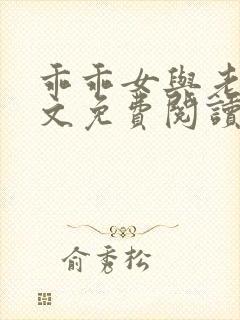 乖乖女與老
文免費閱讀
俞秀松